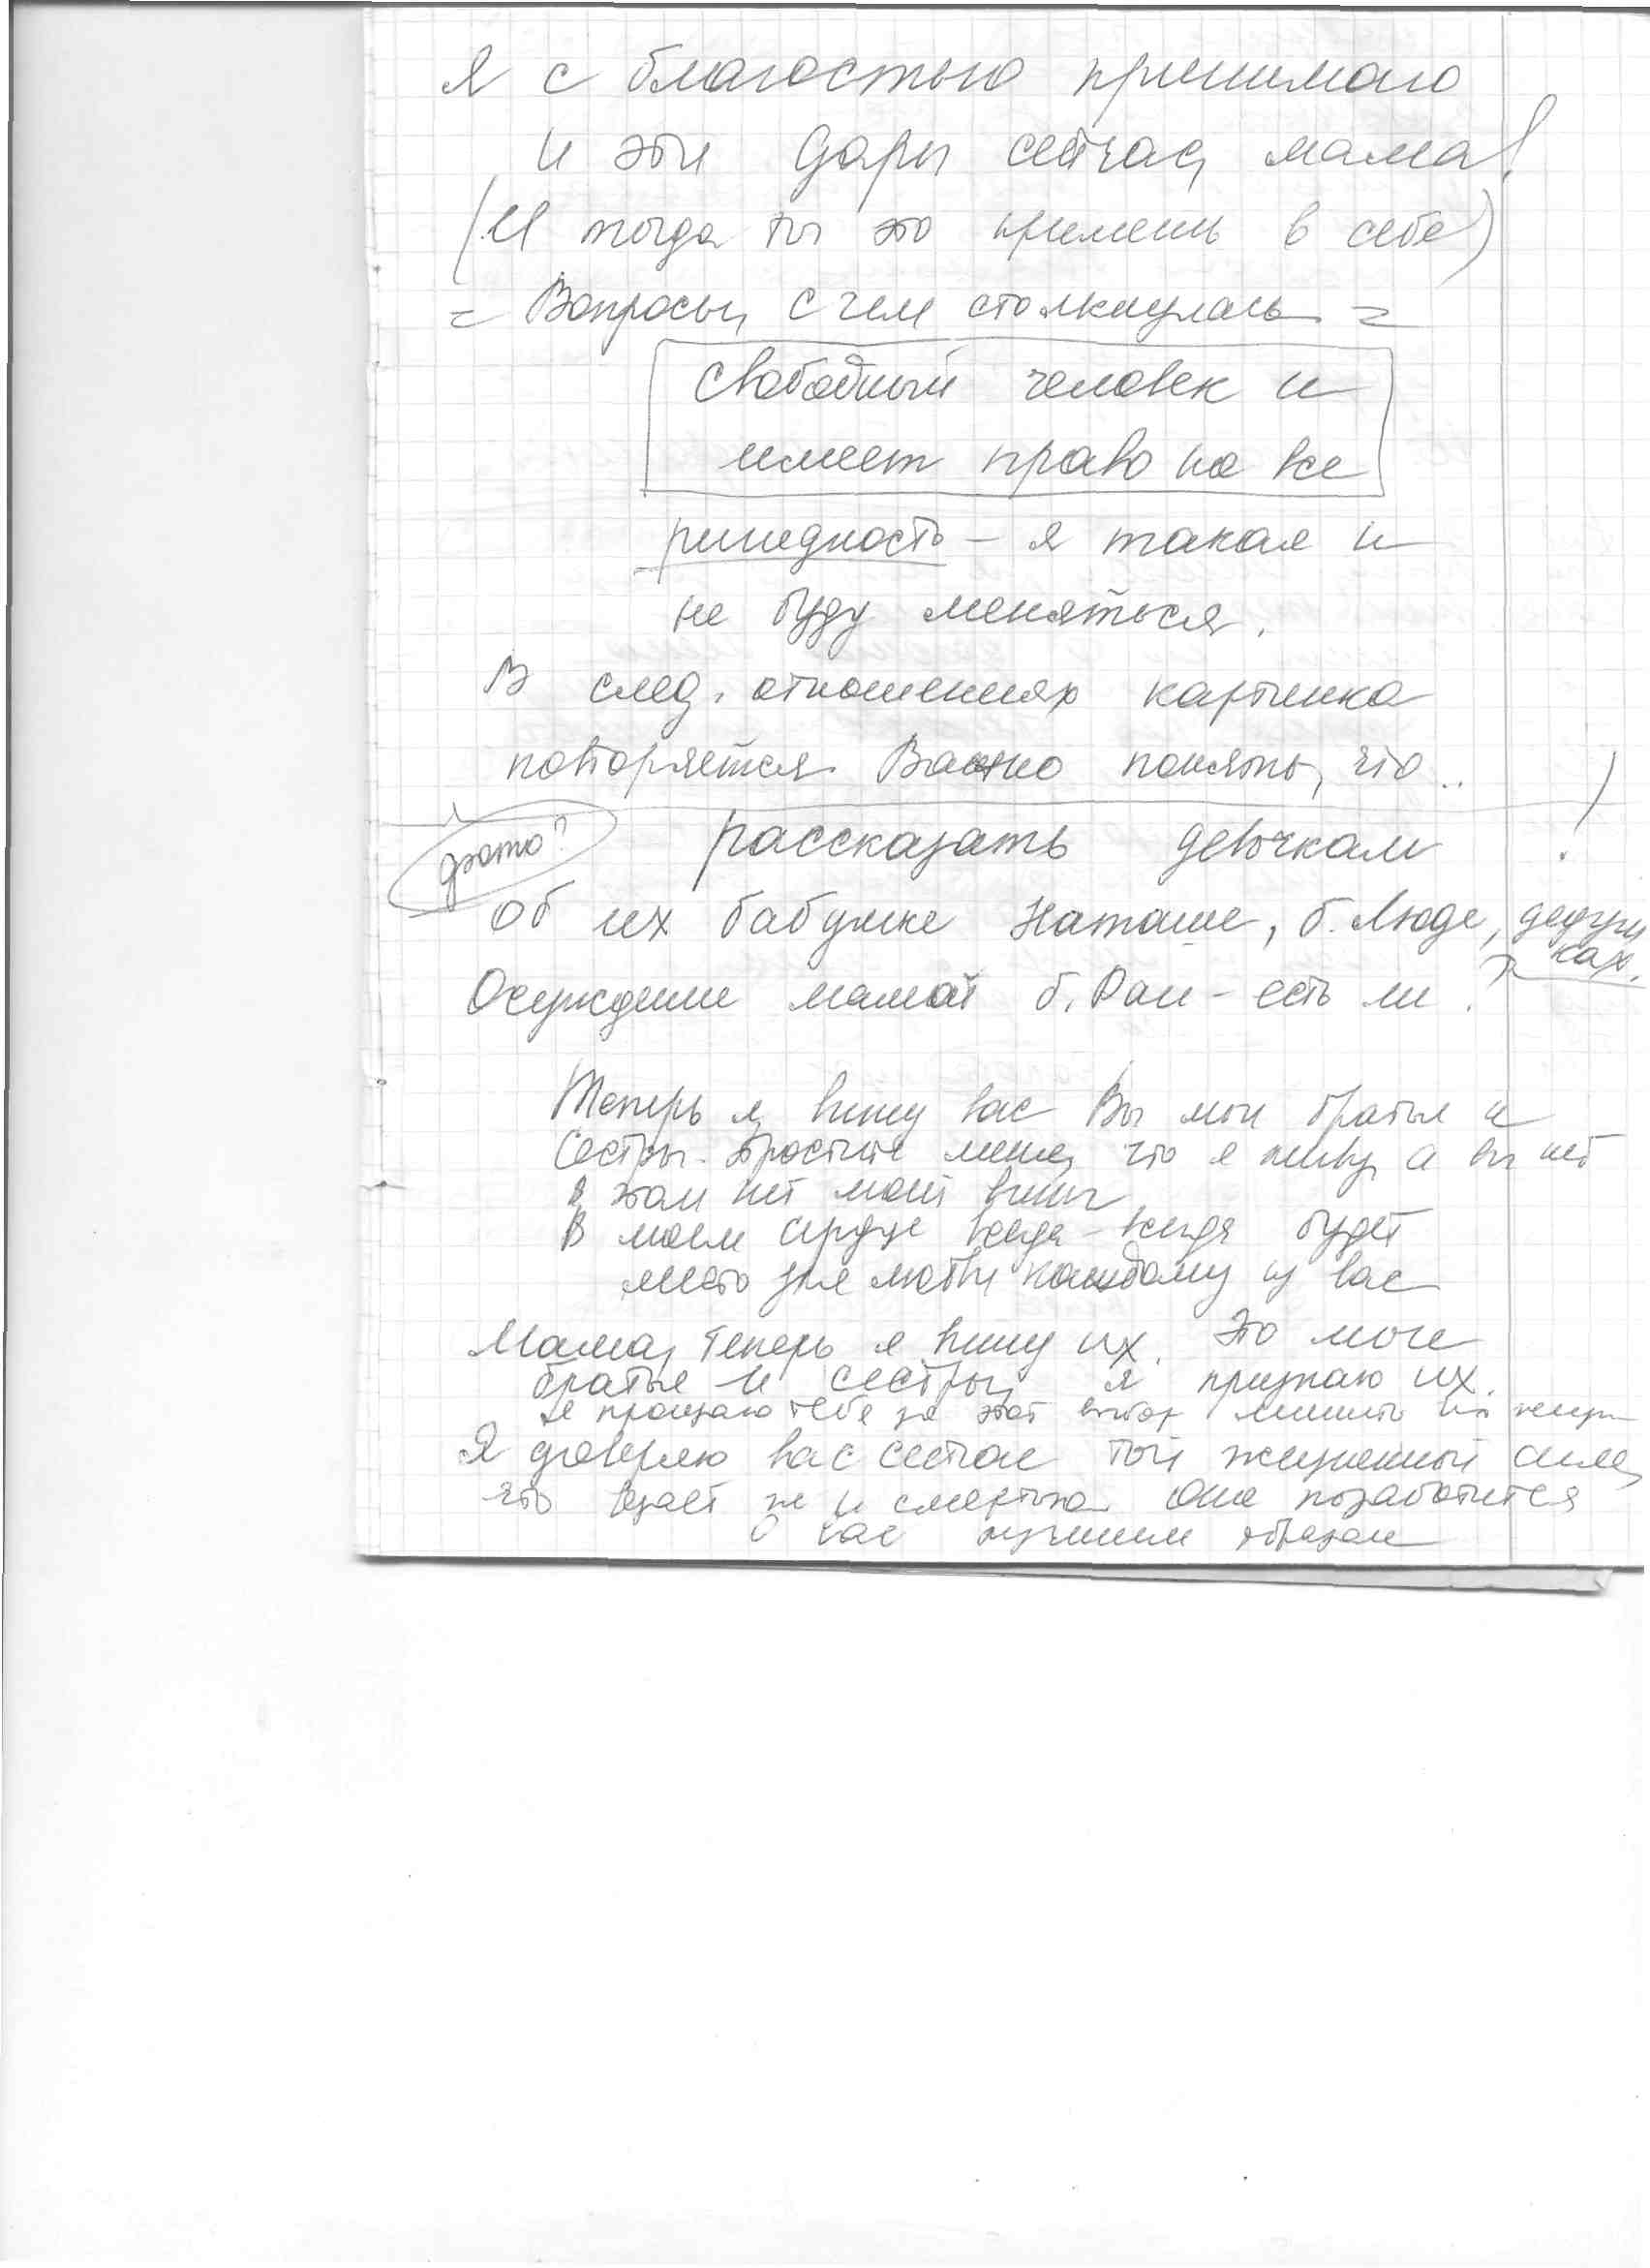 Я с благостью принимаю
и эти дары сейчас, мама!
(И тогда ты это примешь в себе)
= Вопросы, с чем столкнулась =
свободный человек и
имеет право на все
ригидность – я такая и
не буду меняться.
В след. отношениях картинка
повторяется Важно понять, что..
фото? рассказать девочкам !
об их бабушке Наташе, б. Люде, дедуш
ках.
Осуждение мамой б. Раи – есть ли ?
Теперь я вижу вас Вы мои братья и
сестры. Простите меня, что я живу, а вы нет
В этом нет моей вины
В моем сердце всегда-всегда будет
место для любви каждому из вас
Мама, теперь я вижу их. Это мои
братья и сестры, я признаю их.
Я прощаю тебя за этот выбор лишить их жизни
Я доверяю вас сейчас той жизненной силе,
что ведает и смертью Она позаботится
о вас лучшим образом